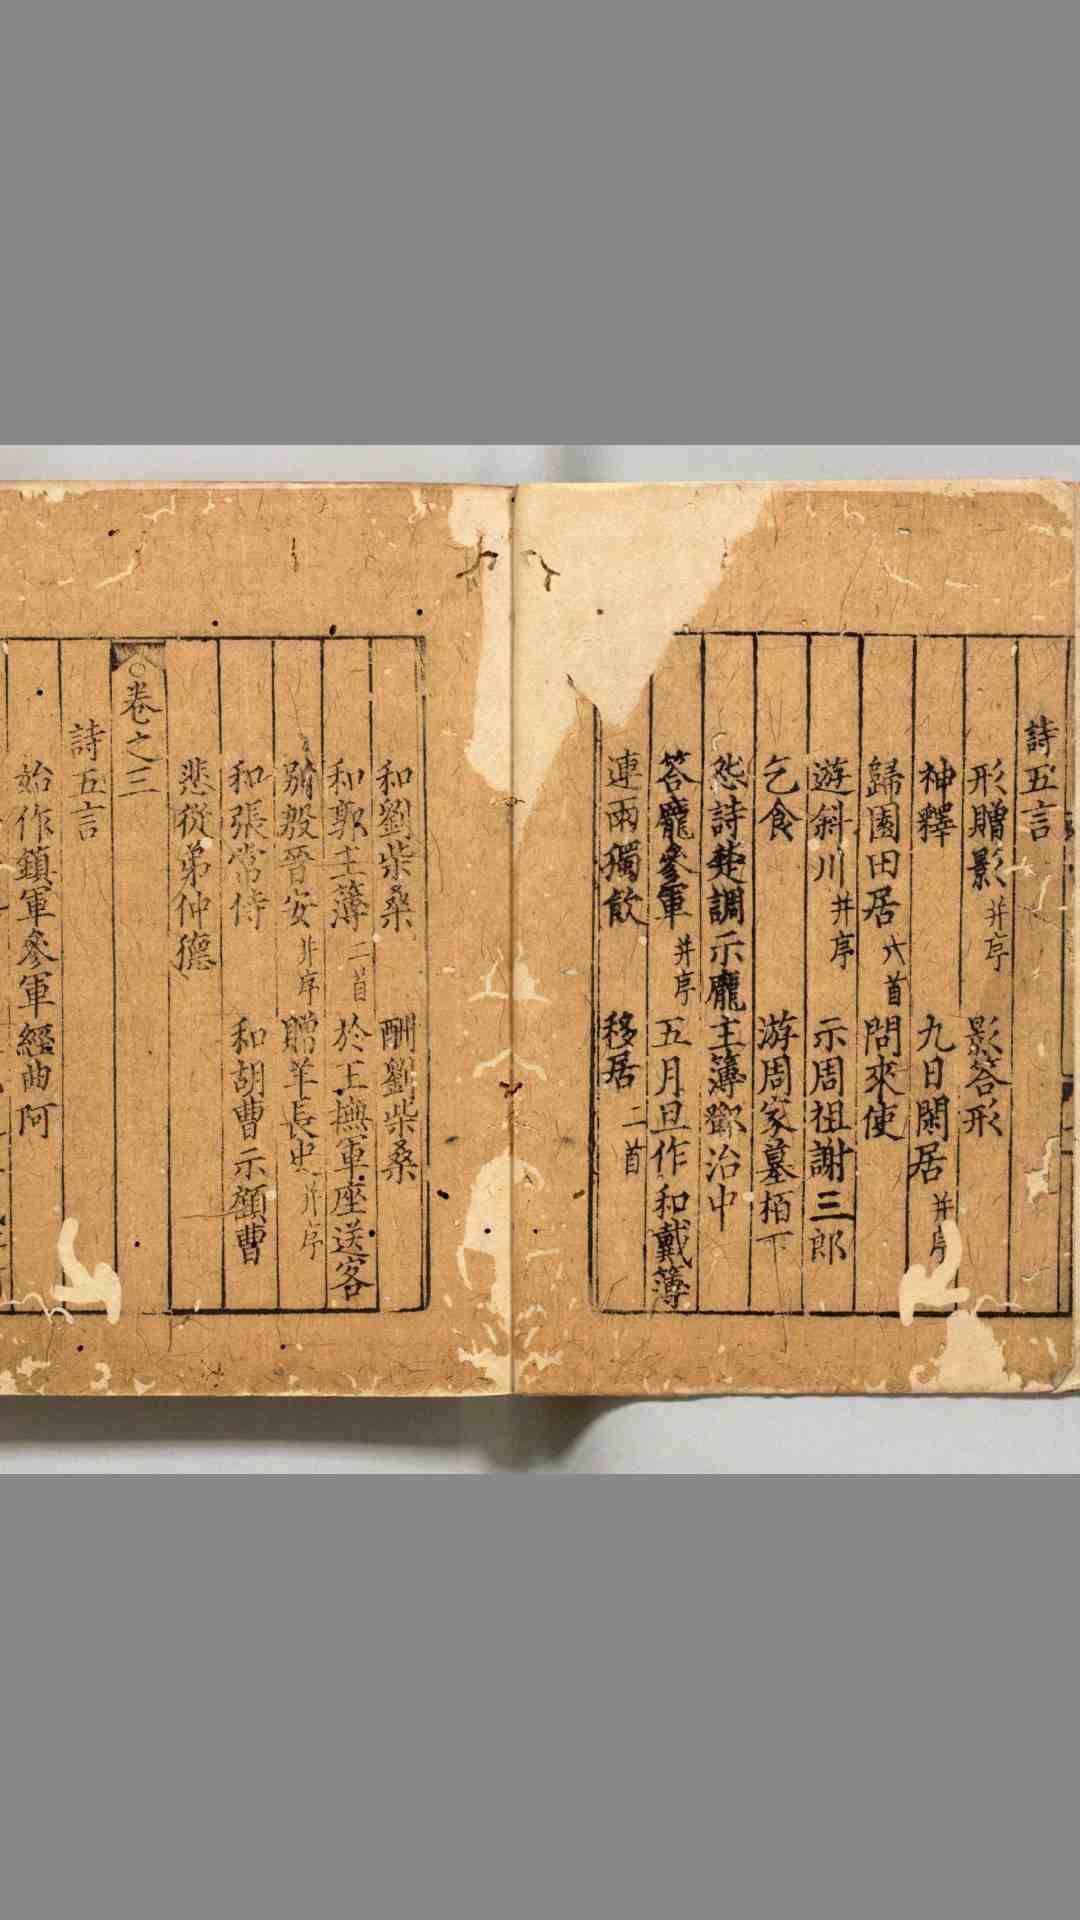 詩五言
形贈影 并序 影答形
神釋 九日閑居 并序
歸園田居 六首 問來使
遊斜川 并序 示周祖謝三郎
乞食 游周家墓栢下
怨詩楚調示龐主簿鄧治中
答龐參軍 并序 五月旦作和戴簿
連雨獨飲 移居 二首
和劉柴桑 酬劉柴桑
和郭主簿 二首 於王撫軍座送客
別殷晉安 并序 贈羊長史 并序
和張常侍 和胡曹示顧曹
悲從弟仲德
○卷之三
詩五言
始作鎮軍參軍經曲阿